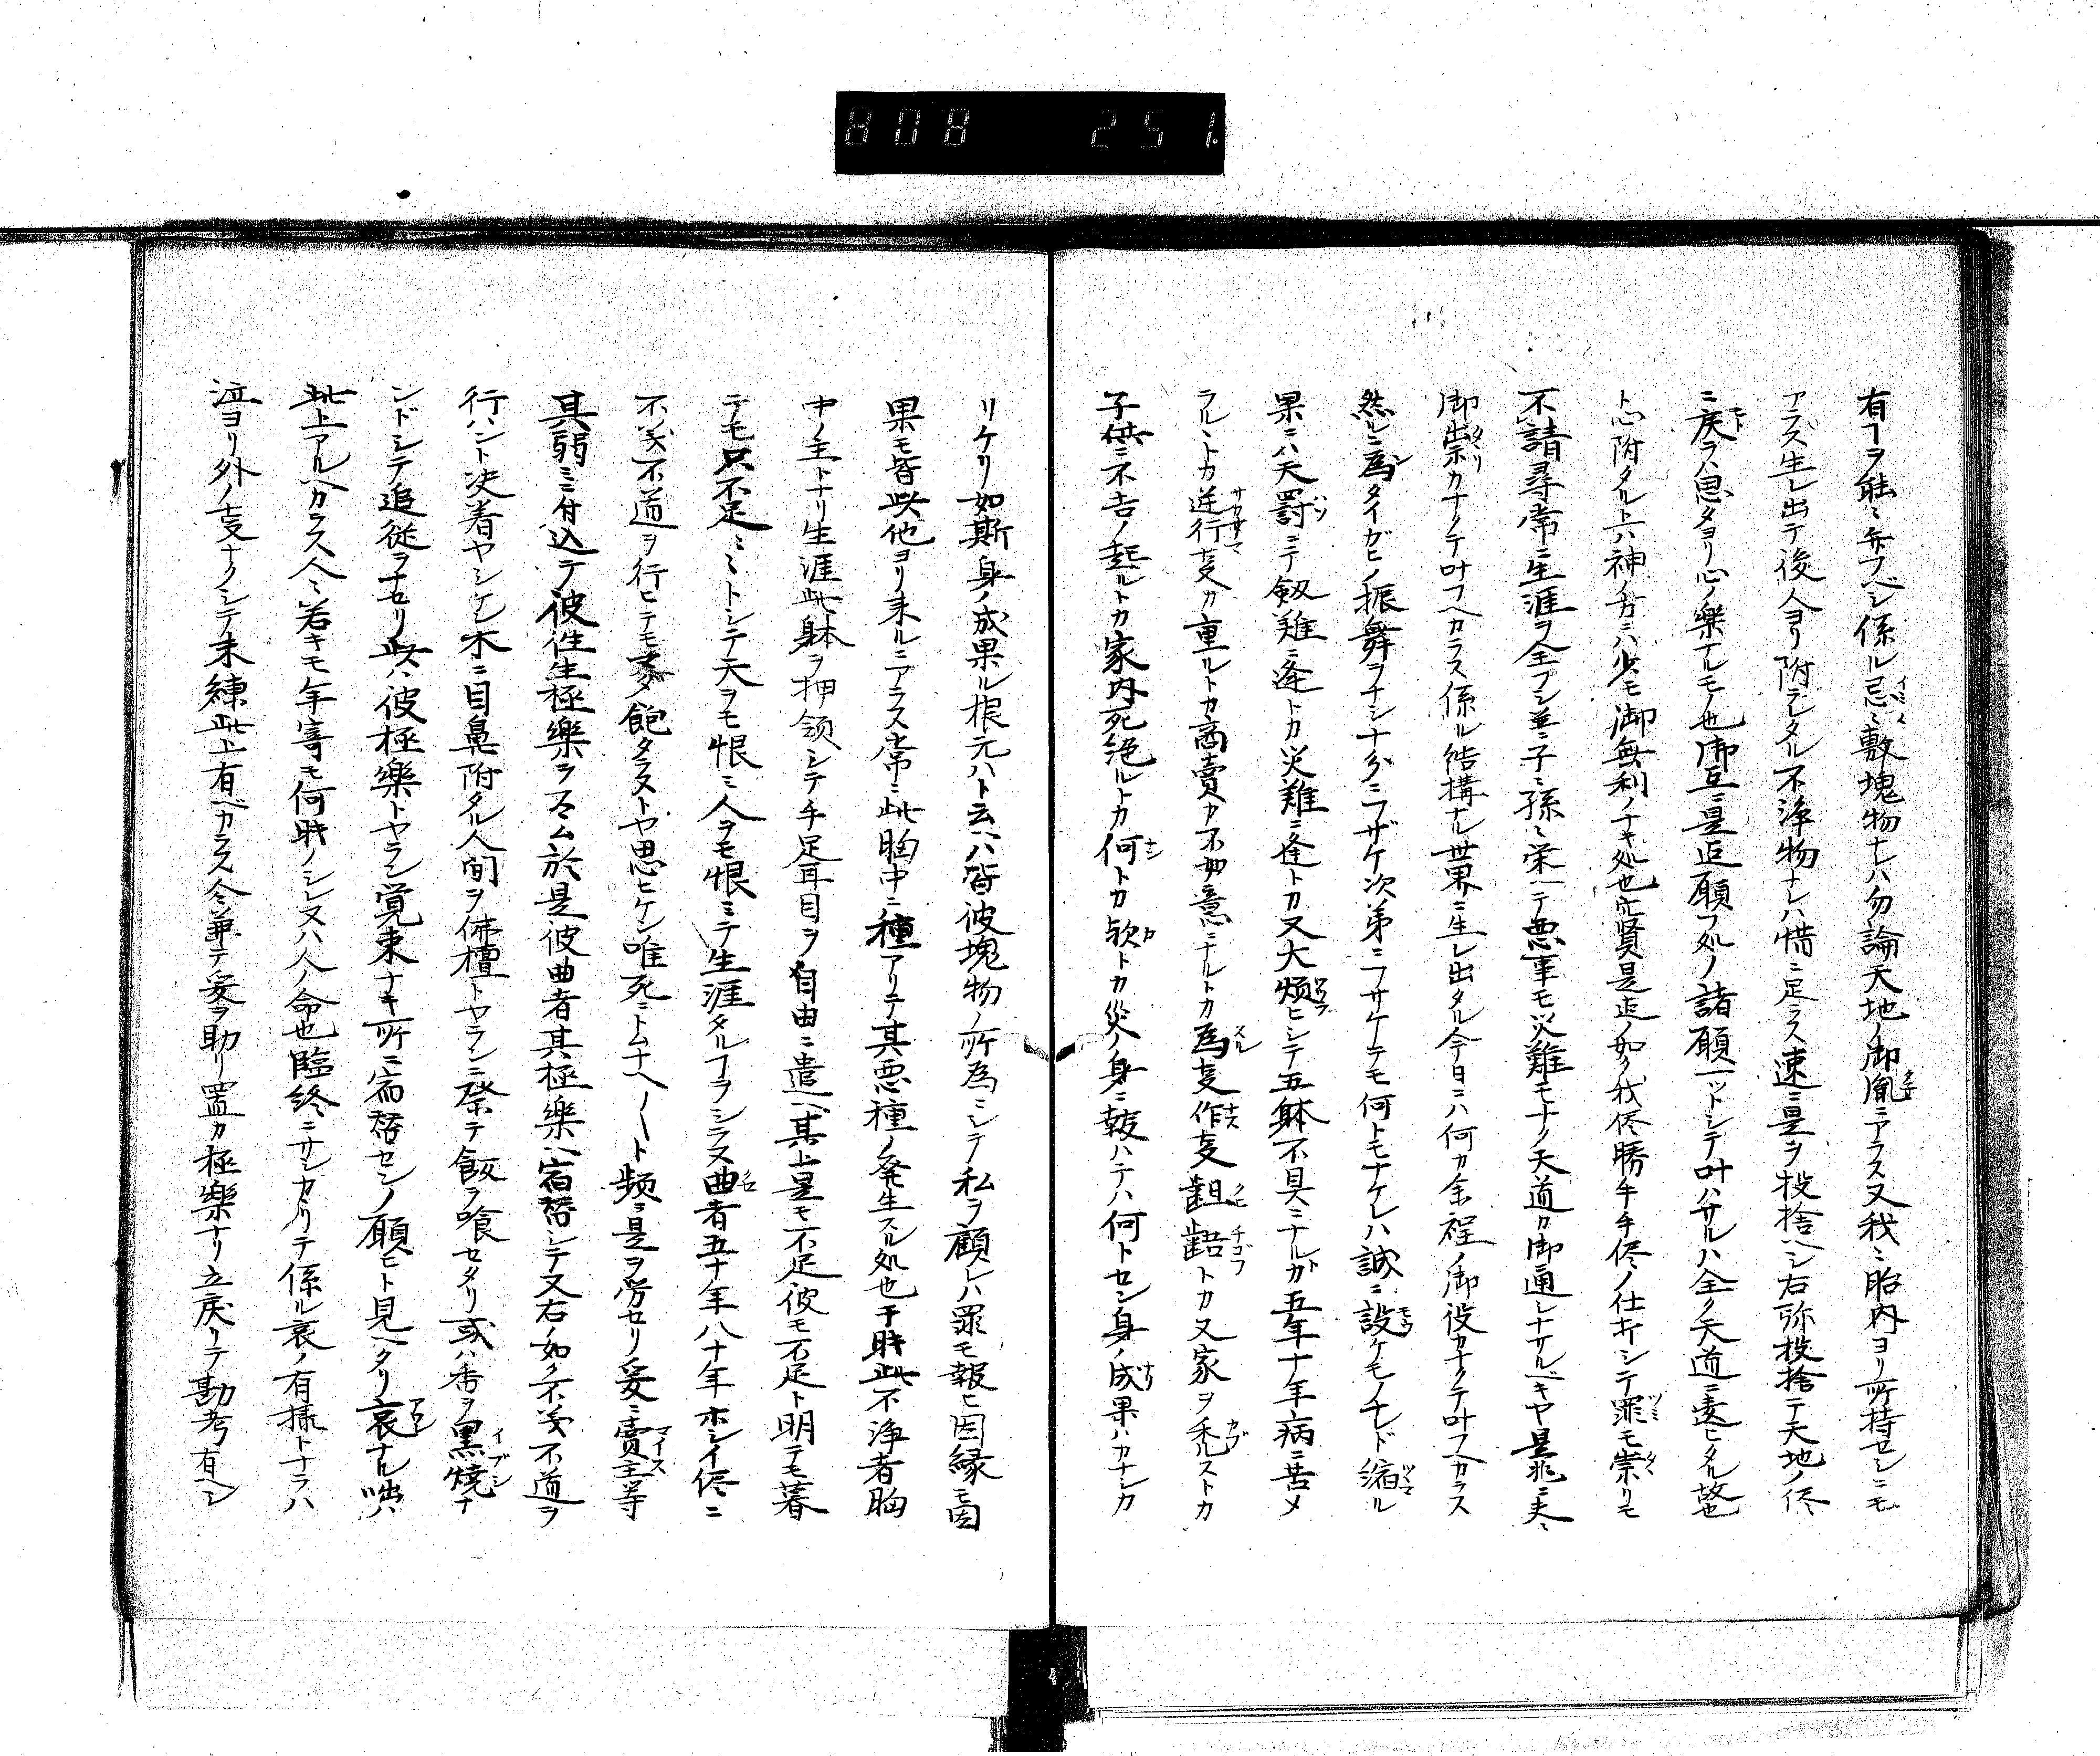 808 251
有ヿヲ能ミ弁フベシ係ル忌ミ敷塊物ナレハ勿論天地ノ御胤ニアラス又我ミ胎内ヨリ所持セシニモ
アラズ生レ出テ後人ヨリ附ラレタル不浄物ナレハ惜ニ足ラス速ニ是ヲ投捨ヘシ右弥投捨テ天地ノ侭
ニ戻ラハ思タヨリ心ノ樂ナルモノ也御互ニ是迄願フ処ノ諸願一ツトシテ叶ハサルハ全ク天道ニ違ヒタル故也
ト心附タル上ハ神ノ方ニハ少モ御無利ノナキ処也賢是迄ノ如ク我侭勝手侭ノ仕方シテ罪モ祟リモ
不請尋常ニ生涯ヲ全フシ並ニ子ミ孫ミ栄ヘテ悪事モ災難モナク天道カ御通シナサルベキヤ是非ニ夫ミ
御祟カナクテ叶フヘカラス係ル結構ナル世界ニ生レ出タル今日ニハ何カ余程ノ御役カナクテ叶フヘカラス
然ルニ為タイガヒノ振舞ヲナシナガラニフザケ次第ニフサケテモ何トモナケレハ誠ニ設ケモノナレド縮ル
果ニハ天罸ニテ劔難ニ逢トカ災難ニ逢トカ又大煩ヒシテ五躰不具ニナルカ五年十年病ニ苦メ
ラルヽトカ逆行叓カ重ルトカ商賣カ不如意ニナルトカ為叓作叓齟齬トカ又家ヲ禿ルストカ
子供ニ不吉ノ起ルトカ家内死絶ルトカ何トカ欤トカ災ノ身ニ報ハテハ何トセン身ノ成果ハカナシカ
リケリ如斯身ノ成果ル根元ハト云ハ皆彼塊物ノ所為ニシテ私ヲ顧レハ罪モ報ヒ因縁モ因
果モ皆此他ヨリ来ルニアラス常ニ此胸中ニ種アリテ其悪種ノ発生スル処也于時此不浄者胸
中ノ主トナリ生涯此躰ヲ押領シテ手足耳目ヲ自由ニ遣ヘ其上是モ不足彼モ不足ト明テモ暮
テモ只不足ミミトシテ天ヲモ恨ミ人ヲモ恨ミテ生涯タルヿヲシラス曲者五十年八十年ホシイ侭ニ
不義不道ヲ行ヒテモ未タ飽タラストヤ思ヒケン唯死ニトムナヘ〱ト頻ニ是ヲ労セリ爰ニ賣主等
其弱ミニ付込テ彼徃生極樂ヲスヽム於是彼曲者其極樂ヘ宿替シテ又右ノ如ク不義不道ヲ
行ハント决着ヤシケン木ニ目鼻附タル人間ヲ佛檀トヤランニ祭テ飯ヲ喰セタリ或ハ香ヲ黒焼ナ
ンドシテ追従ヲナセリ此ハ彼極樂トヤラン覚束ナキ所ニ宿替センノ願ヒト見ヘタリ哀ナル咄ハ
此上アルヘカラス人ミ若キモ年寄モ何時ノシレヌハ人ノ命也臨終ニサシカヽリテ係ル哀ノ有様トナラハ
泣ヨリ外ノ叓ナクシテ未練此上有ベカラス今兼テ爰ヲ助リ置カ極樂ナリ立戻リテ勘考有ヘシ